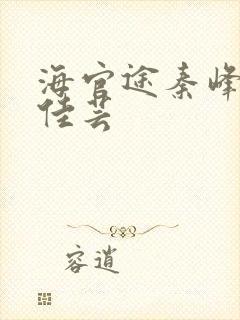 海官途秦峰
佳芸
容逍